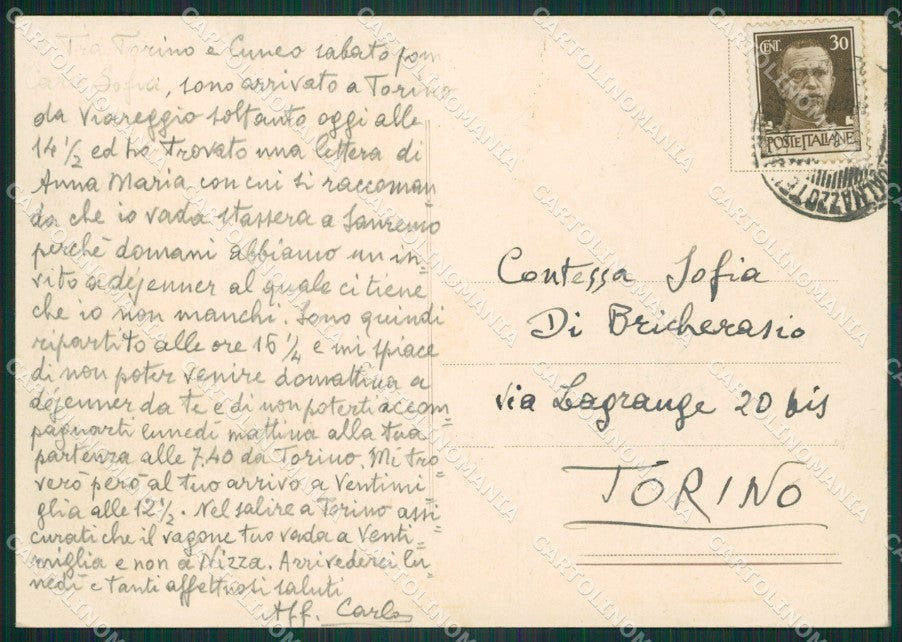 Tra Torino e Cuneo sabato pom
Cara Sofia, sono arrivato a Torino
da Viareggio soltanto oggi alle
14 1/2 ed ho trovato una lettera di
Anna Maria con cui si raccoman
da che io vada stassera a Sanremo
perché domani abbiamo un in=
vito a déjenner al quale ci tiene
che io non manchi. Sono quindi
ripartito alle ore 16 1/4 e mi spiace
di non poter venire domattina a
déjenner da te e di non poterti accom
pagnarti lunedì mattina alla tua
partenza alle 7.40 da Torino. Mi tro
verò però al tuo arrivo a Ventimi=
glia alle 12 1/2. Nel salire a Torino assi=
curati che il vagone tuo vada a Venti=
miglia e non a Nizza. Arrivederci lu=
nedì e tanti affettuosi saluti
Aff. Carlo
CENT. 30
POSTE ITALIANE
Contessa Sofia
Di Bricherasio
via Lagrange 20 bis
TORINO
CARTOLINOMANIA